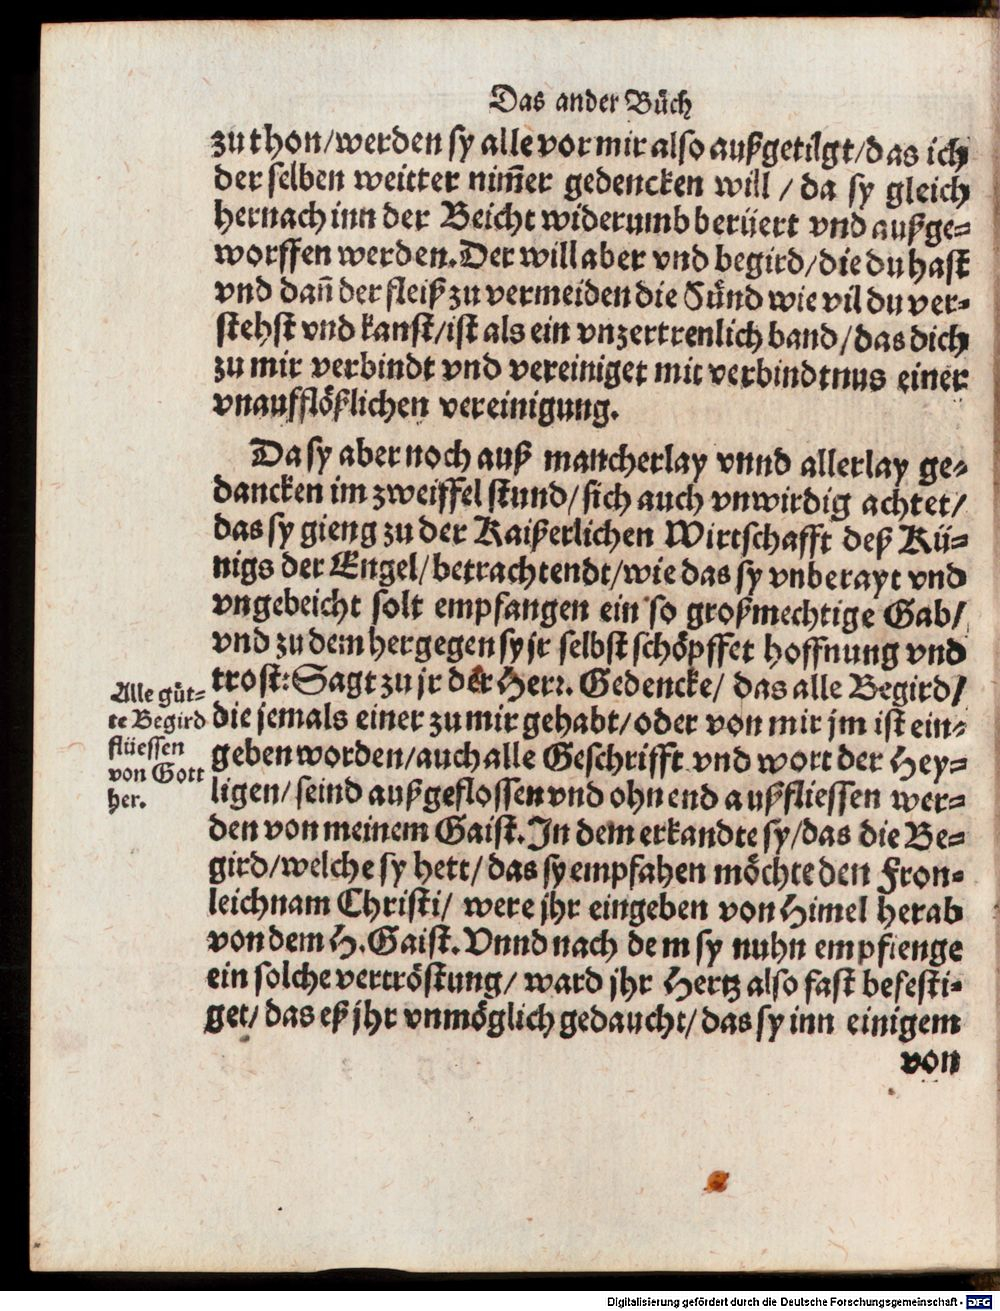 Das ander Bůch
zu thon/werden sy alle vor mir also außgetilgt/das ich
der selben weitter nim̄er gedencken will / da sy gleich
hernach inn der Beicht widerumb berüert vnd außge-
worffen werden. Der will aber vnd begird/die du hast
vnd dañ der fleiß zu vermeiden die Sünd wie vil du ver-
stehst vnd kanst/ist als ein vnzertrenlich band/das dich
zu mir verbindt vnd vereiniget mit verbindtnus einer
vnaufflößlichen vereinigung.
Da sy aber noch auß mancherlay vnnd allerlay ge-
dancken im zweiffel stund/sich auch vnwirdig achtet/
das sy gieng zu der Kaißerlichen Wirtschafft deß Kü-
nigs der Engel/betrachtendt/wie das sy vnberayt vnd
vngebeicht solt empfangen ein so großmechtige Gab/
vnd zu dem hergegen sy jr selbst schöpffet hoffnung vnd
trost: Sagt zu jr der Herr. Gedencke/ das alle Begird/
die jemals einer zu mir gehabt/oder von mir jm ist ein-
geben worden/auch alle Geschrifft vnd wort der Hey-
ligen/ seind außgeflossen vnd ohn end außfliessen wer-
den von meinem Gaist. In dem erkandte sy/das die Be-
gird/welche sy hett/das sy empfahen möchte den Fron-
leichnam Christi/ were jhr eingeben von Himel herab
von dem H. Gaist. Vnnd nach dem sy nuhn empfienge
ein solche vertröstung/ ward jhr Hertz also fast befesti-
get/ das eß jhr vnmöglich gedaucht/das sy inn einigem
von
Alle gůt-
te Begird
flüessen
von Gott
her.
Digitalisierung gefördert durch die Deutsche Forschungsgemeinschaft - DFG